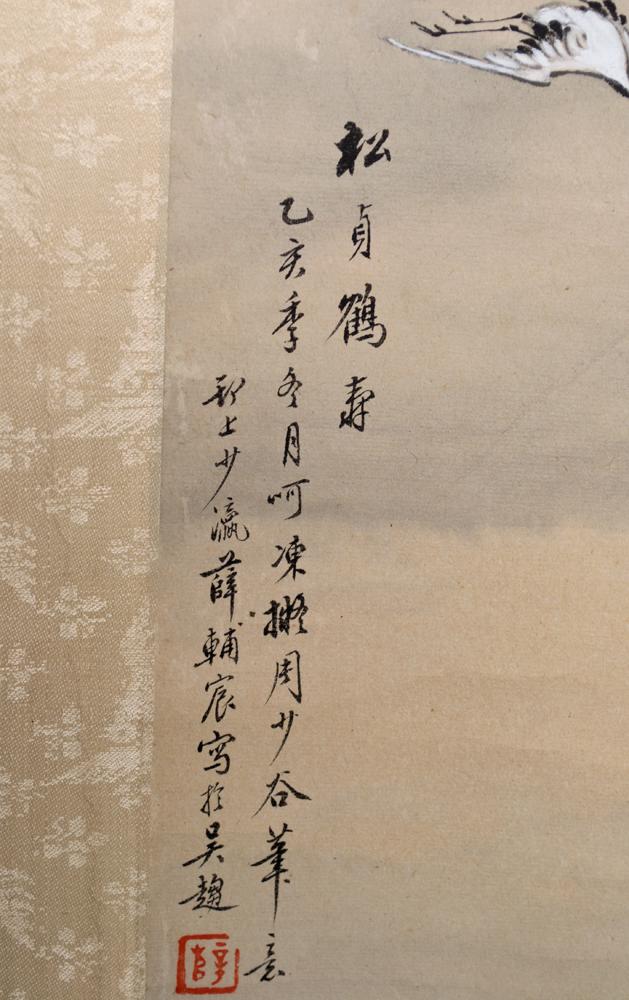 松貞鶴壽
乙亥季冬月呵凍擬周少谷筆意
上少瀛薛輔宸寫於吳趨
薛